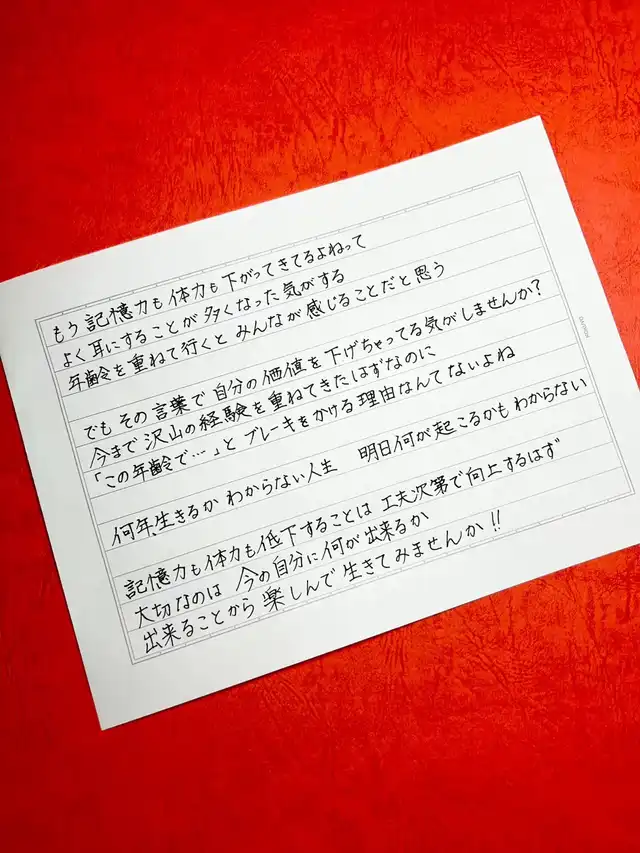 もう記憶力も体力も下がってきてるよねって
よく耳にすることが多くなった気がする
年齢を重ねて行くとみんなが感じることだと思う
でもその言葉で自分の価値を下げちゃってる気がしませんか?
今まで沢山の経験を重ねてきたはずなのに
「この年齢で…」とブレーキをかける理由なんてないよね
何年、生きるかわからない人生 明日何が起こるかもわからない
記憶力も体力も低下することは工夫次第で向上するはず
大切なのは今の自分に何が出来るか
出来ることから楽しんで生きてみませんか!!